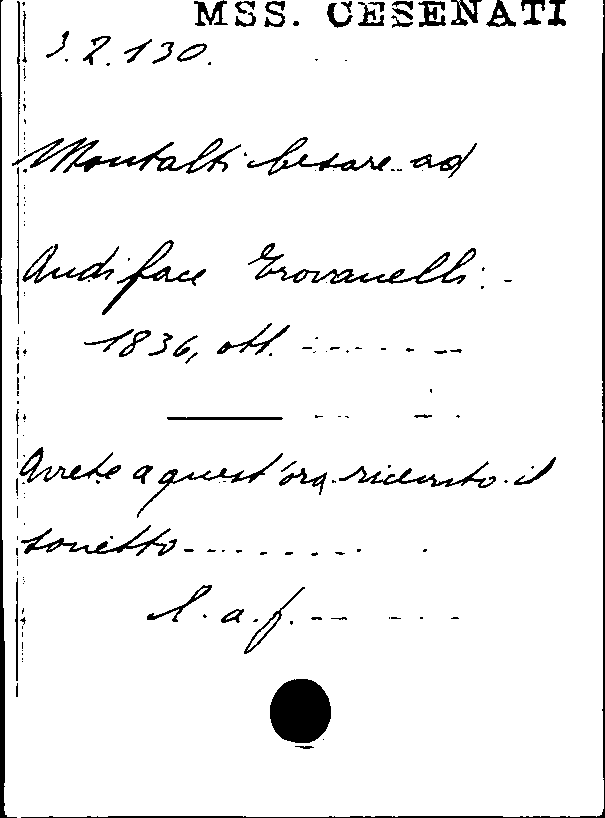 MSS. CESENATI
3.2.130.
Montalti Cesare ad
Audiface Trovanelli: -
1836, ott.
Avrete a quest'ora ricevuto il
sonetto
l. a. f.